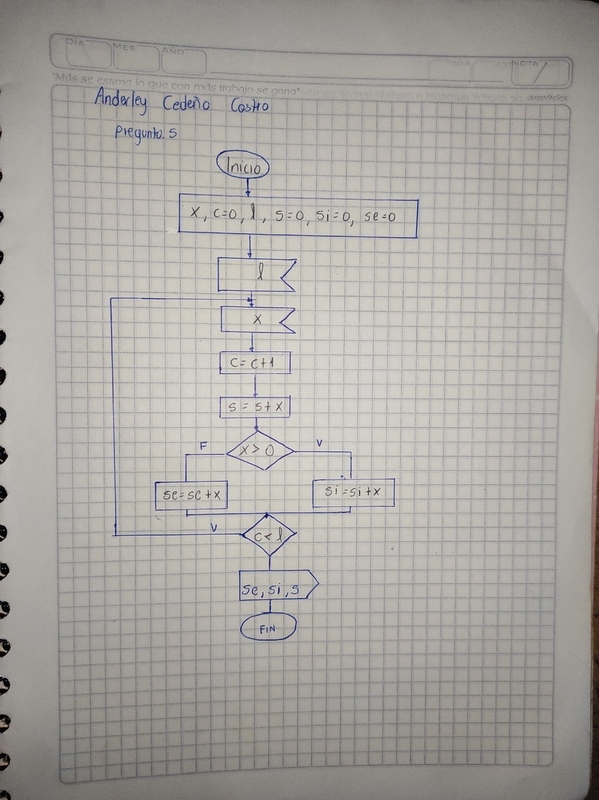 DIA MES AÑO NOTA
"Más se estima lo que con más trabajo se gana"
Anderley Cedeño Castro
Pregunta 5
Inicio
x, c=0, l, s=0, si=0, se=0
l
x
c=c+1
s=s+x
x>0
F
V
se=se+x
si=si+x
c<l
V
se, si, s
FIN